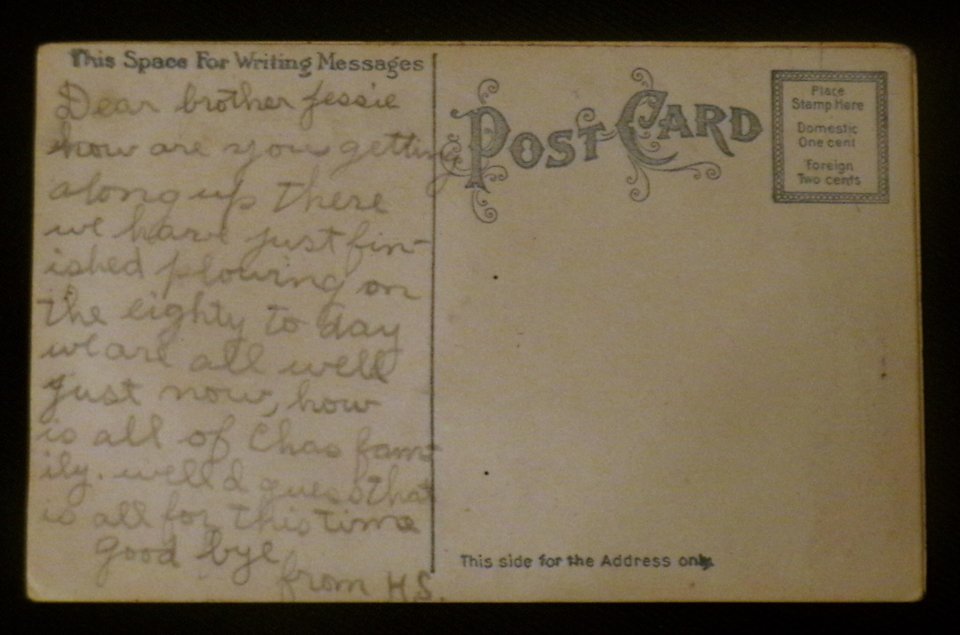 This Space For Writing Messages
Dear brother Jessie
how are you getting
along up there
we have just fin-
ished plowing on
the eighty to day
we are all well
just now, how
is all of Chas fam-
ily. well I guess that
is all for this time
good bye
from H.S.
POST CARD
Place
Stamp Here
Domestic
One cent
Foreign
Two cents
This side for the Address only.